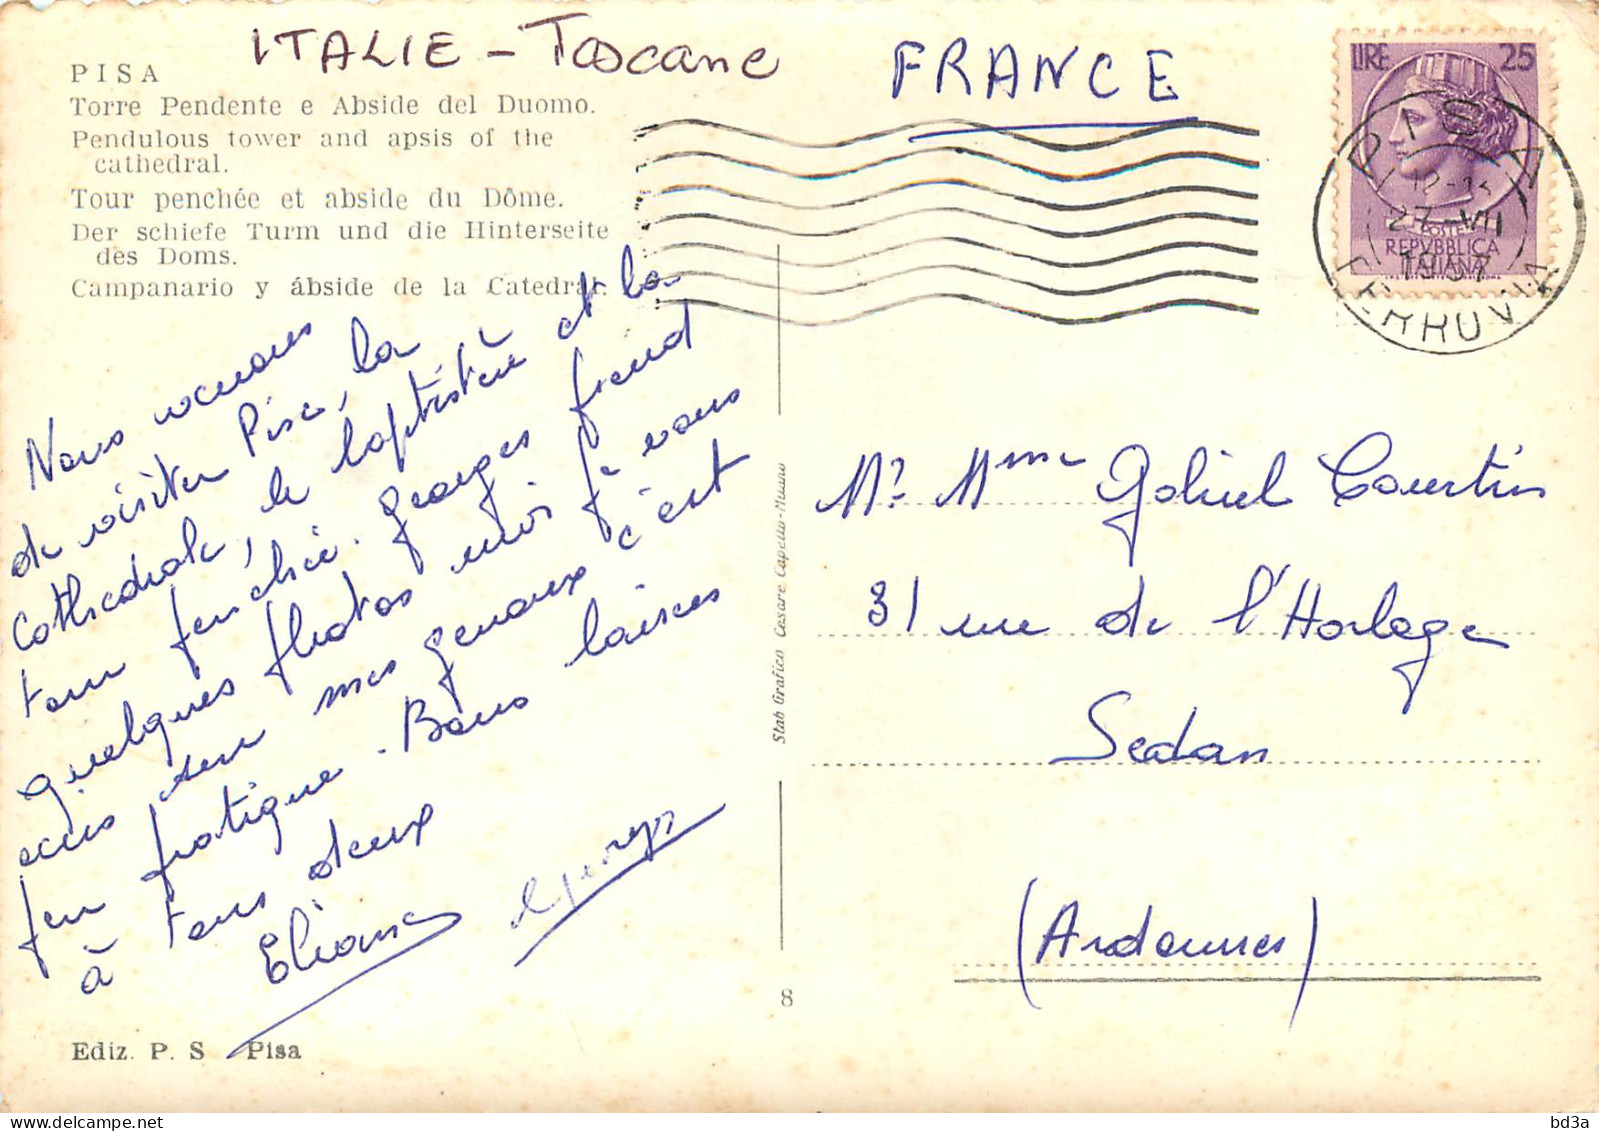 ITALIE - Toscane
FRANCE
PISA
Torre Pendente e Abside del Duomo.
Pendulous tower and apsis of the
cathedral.
Tour penchée et abside du Dôme.
Der schiefe Turm und die Hinterseite
des Doms.
Campanario y ábside de la Catedral.
LIRE 25
POSTE
REPVBBLICA
ITALIANA
PISA
27 VII
1957
FERROVIA
Nous venons
de visiter Pise, la
Cathédrale, le baptistère et la
tour penchée. Georges prend
quelques photos moi je vous
écris sur mes genoux c'est
peu pratique. Bons baisers
à tous deux
Eliane Georges
Mr Mme Gabriel Courtin
31 rue de l'Horloge
Sedan
(Ardennes)
Stab Grafico Cesare Capello-Milano
8
Ediz. P. S Pisa
delcampe.net
bd3a